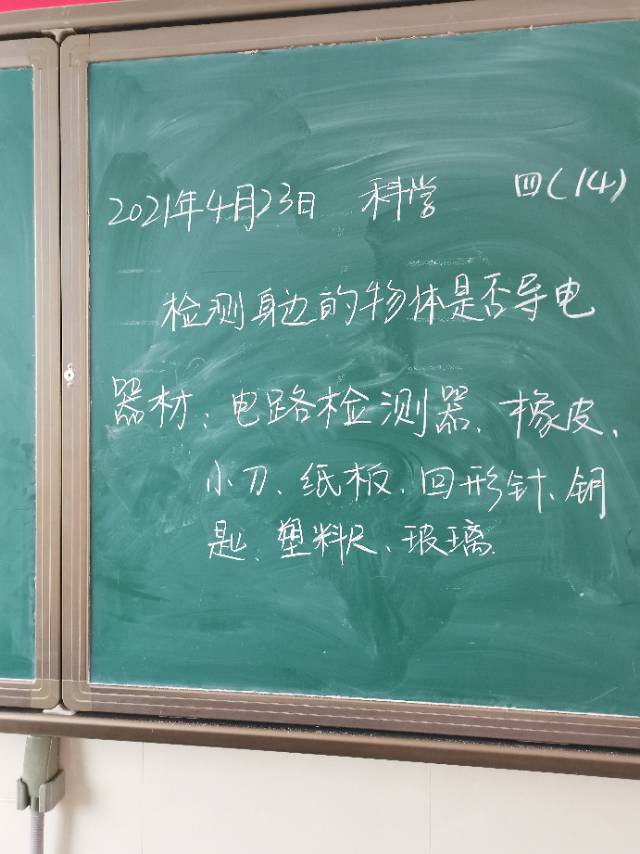 2021年4月23日 科学 四(14)
检测身边的物体是否导电
器材：电路检测器、橡皮、
小刀、纸板、回形针、钥
匙、塑料尺、玻璃.